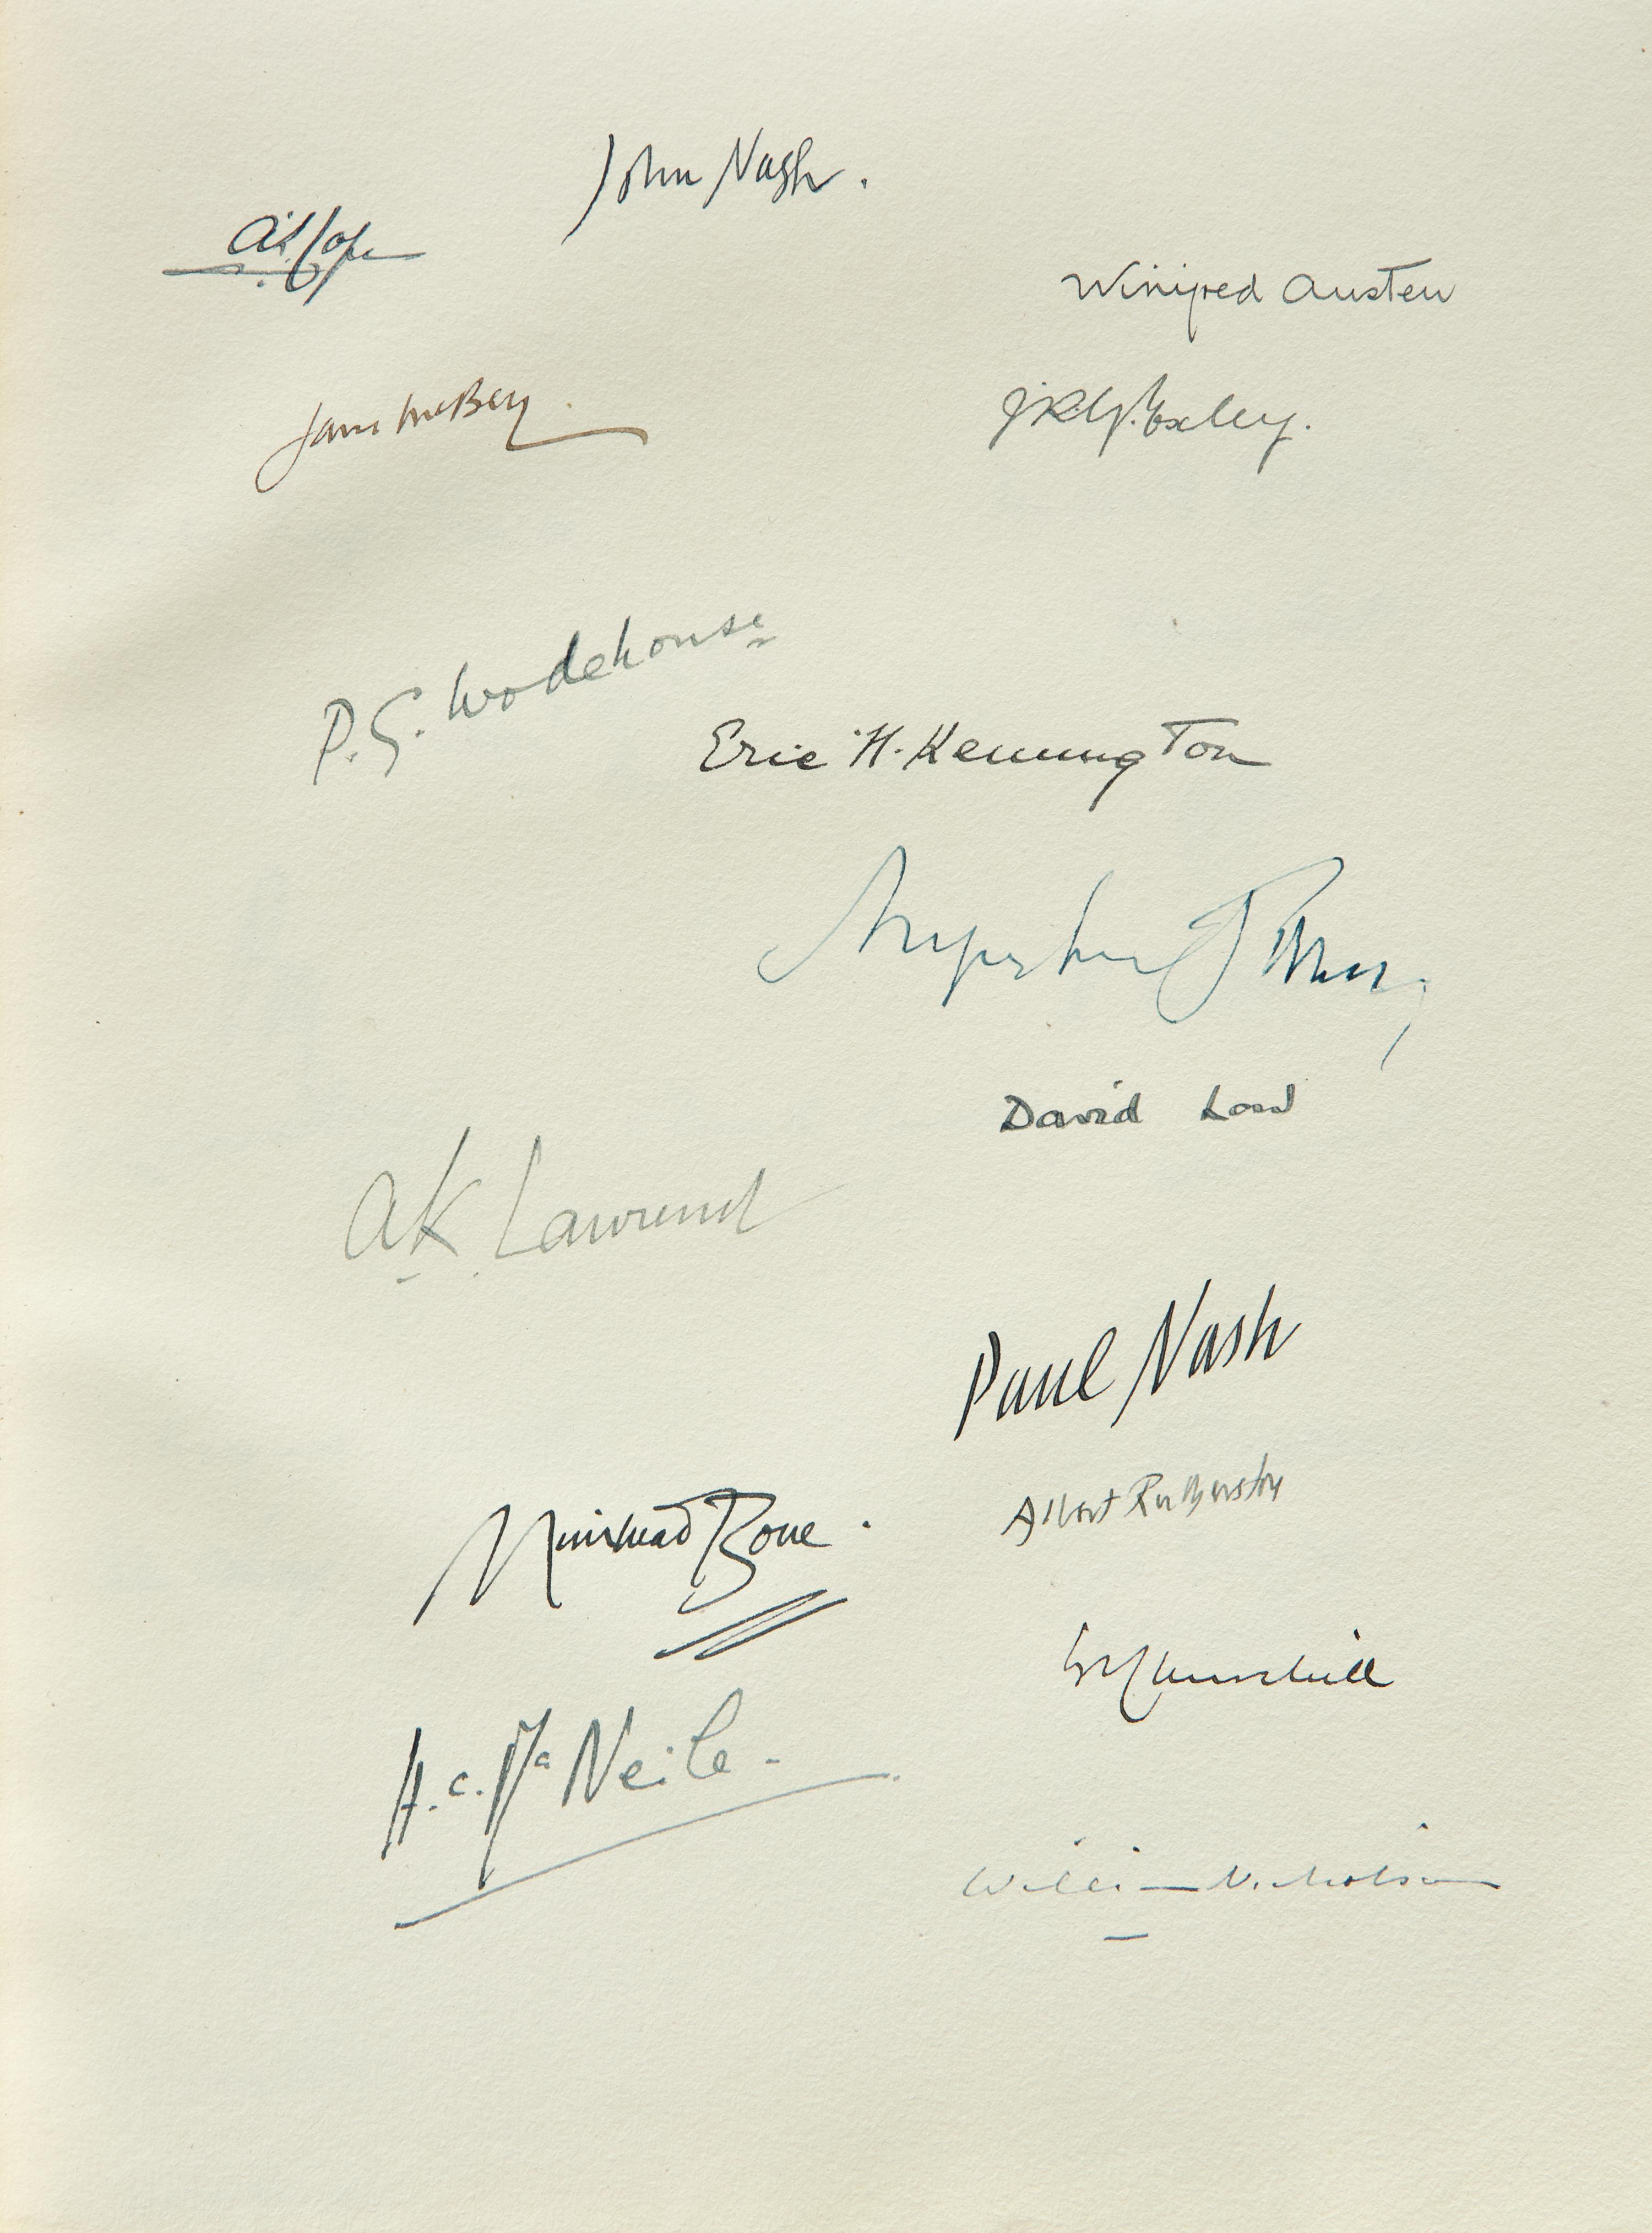 John Nash.
Winifred Austen
James McBey.
J.R.G. Exley.
P.G. Wodehouse
Eric H. Kennington
David Low
A.K. Lawrence
Paul Nash
Albert Rutherston
Muirhead Bone.
H.C. McNeile -
William Nicholson